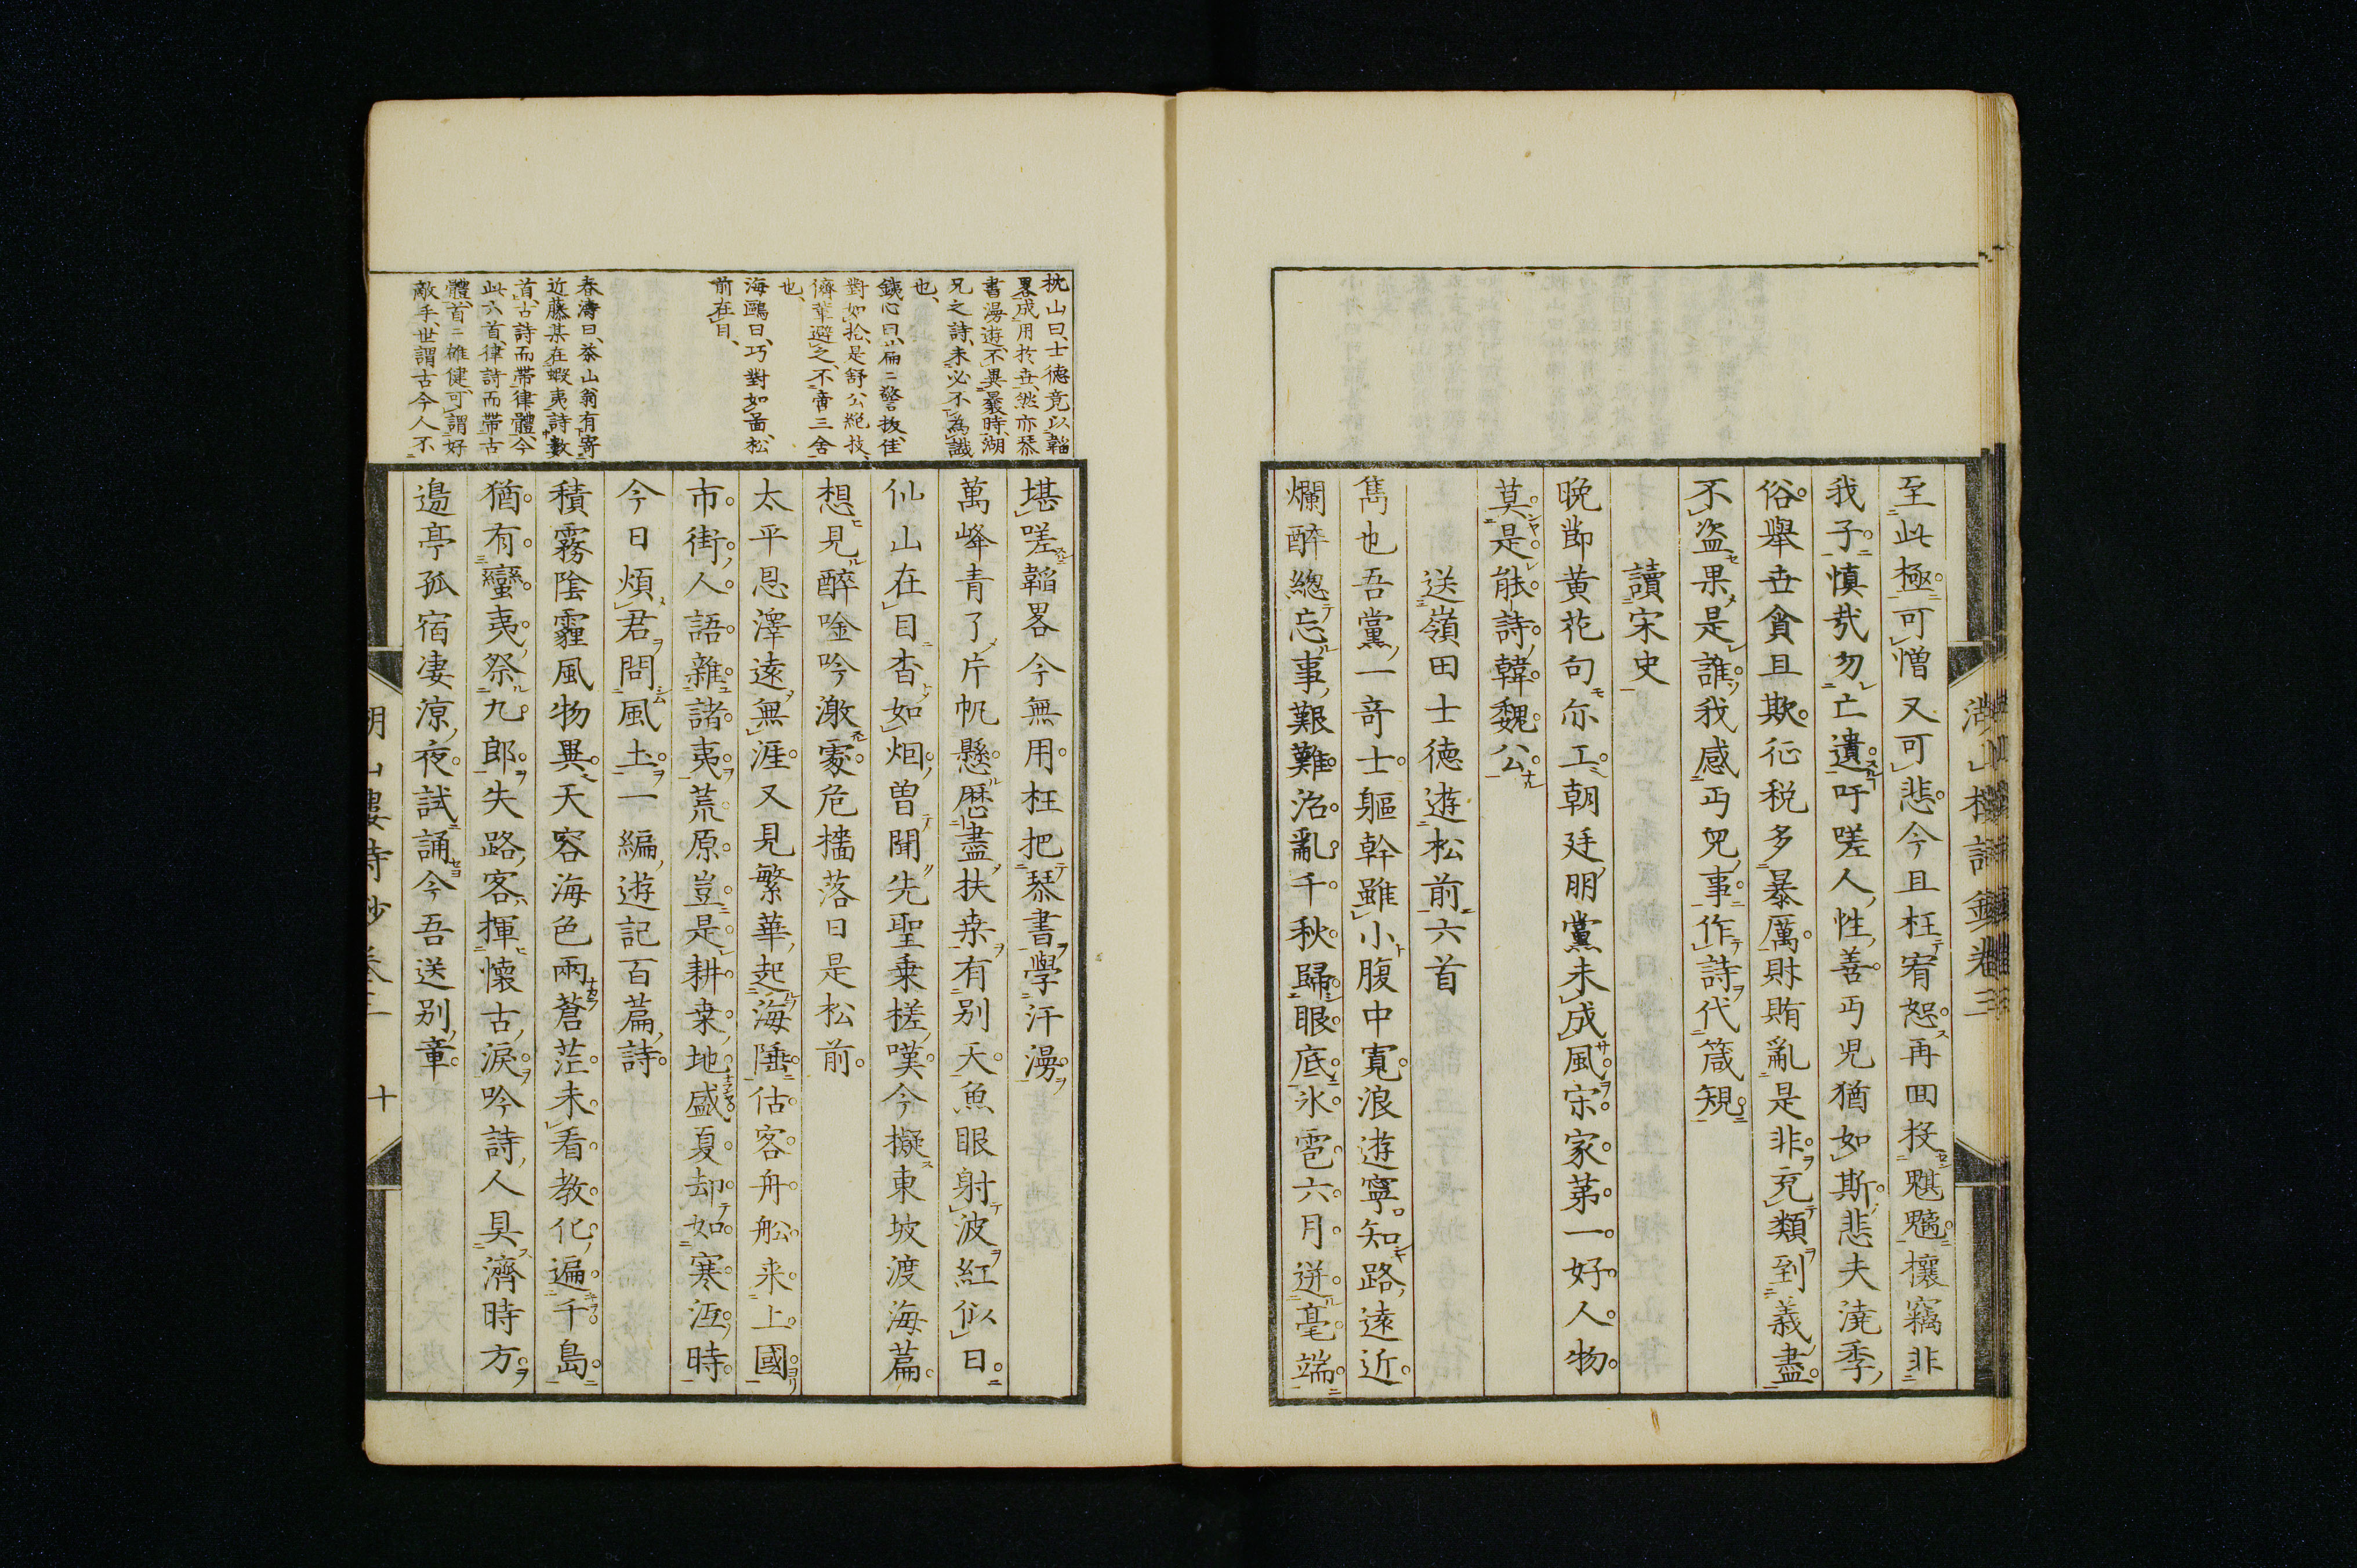 至此極可憎又可悲今且枉宥恕再回投魌魑攘竊非
我子慎哉勿亡遺吁嗟人性善丐児猶如斯悲夫澆季
俗舉世貪且欺征税多暴厲財賄亂是非充類到義盡
不盜果是誰我感丐兒事作詩代箴規
讀宋史
晩節黄花句亦工朝廷朋黨未成風宋家第一好人物
莫是能詩韓魏公
送嶺田士德遊松前六首
雋也吾黨一奇士軀幹雖小腹中寬浪遊寧知路遠近
爛醉總忘事艱難治亂千秋歸眼底氷雹六月迸毫端
枕山曰士德竟以韜
畧成用於世然亦恭
書漫遊不異曩時湖
兄之詩未必不為讖
也
鐵心曰篇二警抜佳
對如拾是舒公絶技
儕輩避之不啻三舍
也
海鷗曰巧對如畵松
前在目
春濤曰茶山翁有寄
近藤某在蝦夷詩數
首古詩而帶律體今
此六首律詩而帶古
體首二雄健可謂好
敵手世謂古今人不
堪嗟韜畧今無用枉把琴書學汗漫
萬峰青了片帆懸歴盡扶桒有别天魚眼射波紅似日
仙山在目杳如烟曽聞先聖乗槎嘆今擬東坡渡海篇
想見醉唫吟激處危檣落日是松前
太平恩澤遠無涯又見繁華起海陲估客舟舩来上國
市街人語雜諸夷荒原豈是耕桒地盛夏却如寒沍時
今日煩君問風土一編遊記百篇詩
積霧陰霾風物異天容海色兩蒼茫未看教化遍千島
猶有蠻夷祭九郎失路客揮懐古淚吟詩人具濟時方
邉亭孤宿凄涼夜試誦今吾送别章
湖山樓詩鈔卷三 十